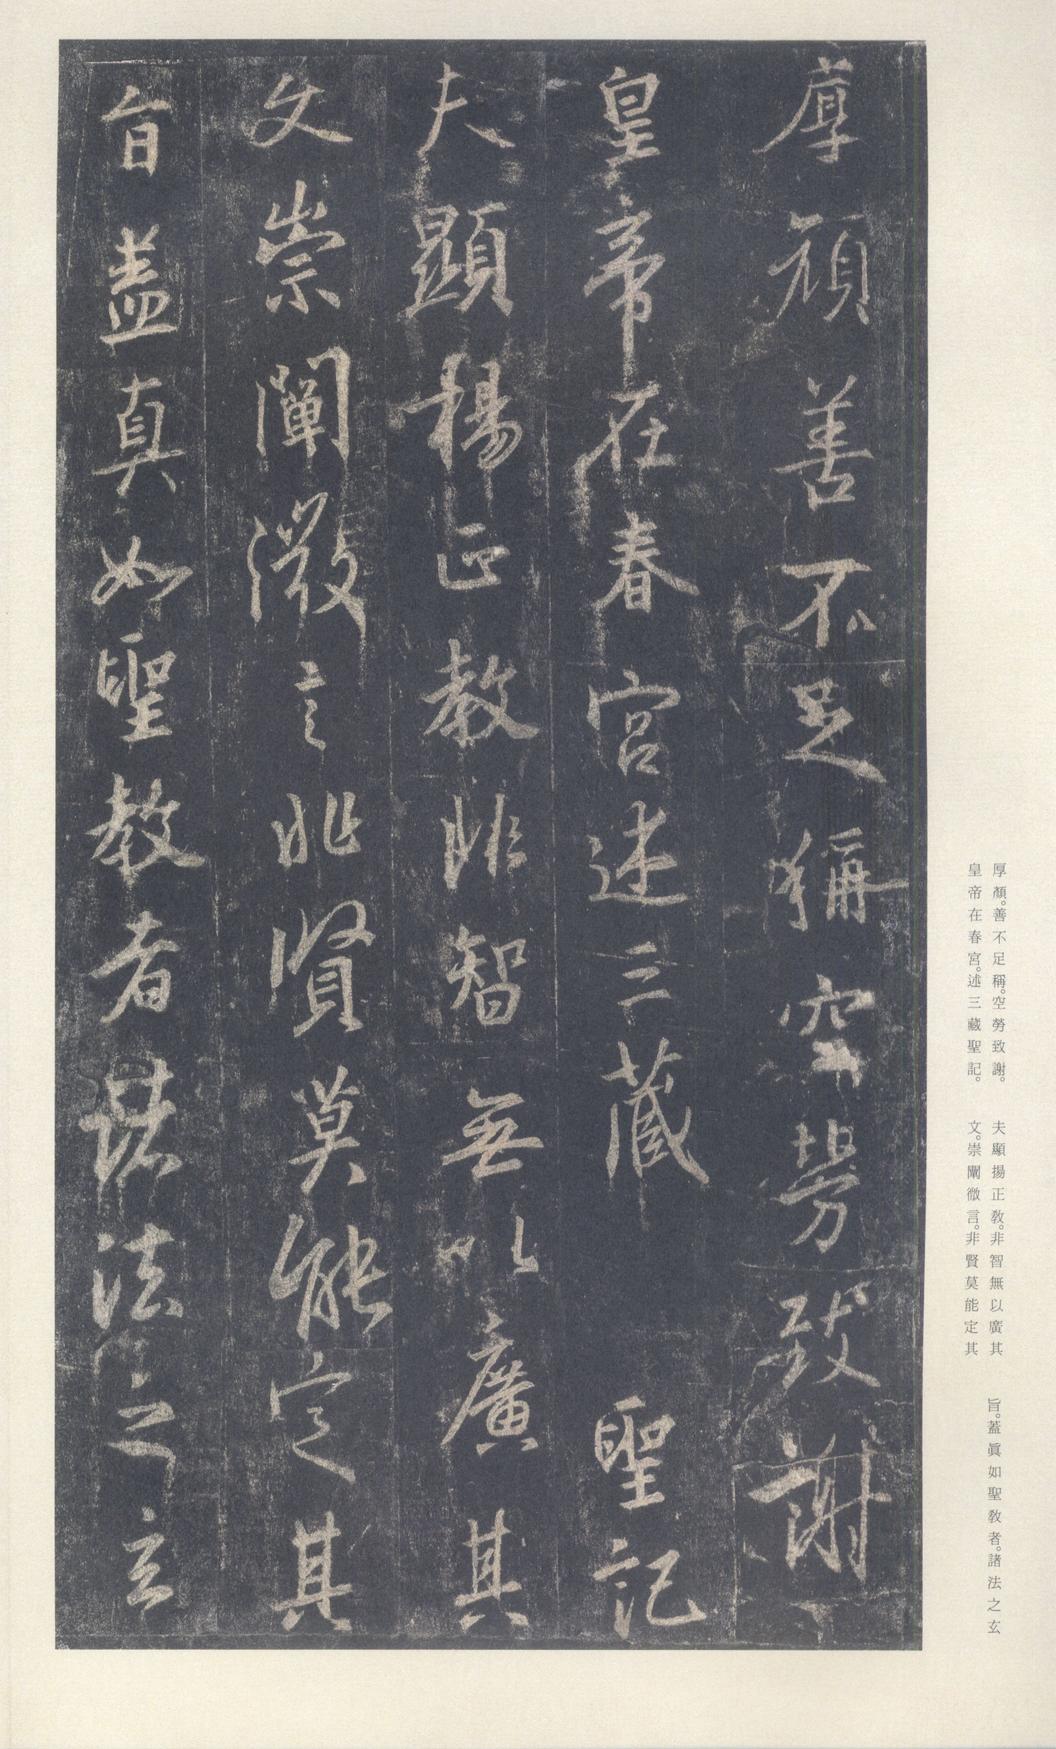 厚顏善不足稱空勞致謝
皇帝在春宮述三藏聖記
夫顯揚正教非智無以廣其
文崇闡微言非賢莫能定其
旨蓋真如聖教者諸法之玄
厚顏。善不足稱。空勞致謝。
皇帝在春宮。述三藏聖記。
夫顯揚正教。非智無以廣其
文。崇闡微言。非賢莫能定其
旨。蓋眞如聖教者。諸法之玄